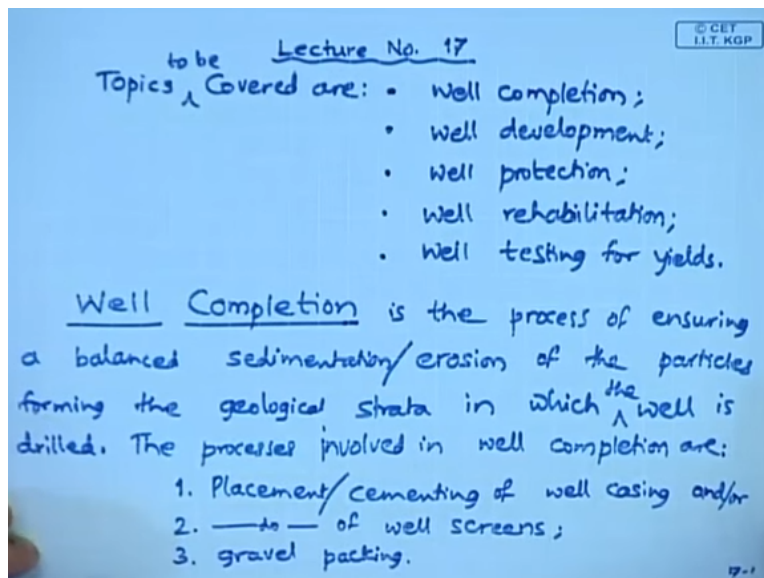 Lecture No. 17
© CET
I.I.T. KGP
Topics to be Covered are: • well completion;
• well development;
• well protection;
• well rehabilitation;
• well testing for yields.
Well Completion is the process of ensuring
a balanced sedimentation/erosion of the particles
forming the geological strata in which the well is
drilled. The processes involved in well completion are:
1. Placement/cementing of well casing and/or
2. —do— of well screens;
3. gravel packing.
17-1